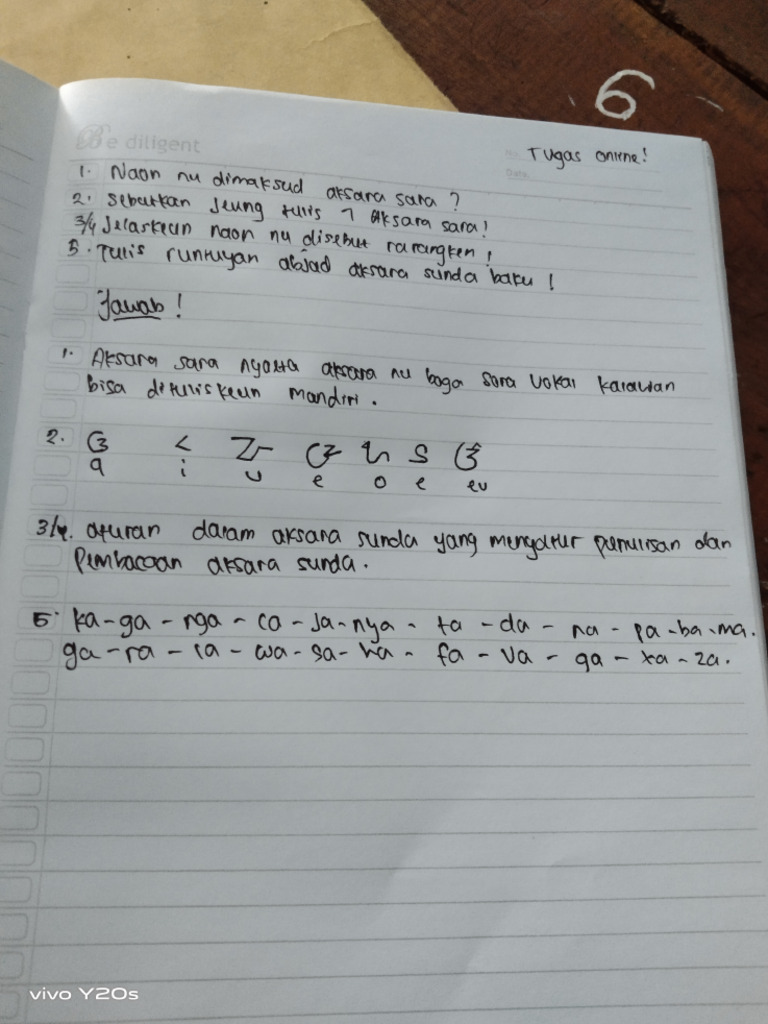 6
Be diligent
Tugas online!
1. Naon nu dimaksud aksara sara ?
2. Sebutkan jeung tulis 7 Aksara sara!
3/4 Jelaskeun naon nu disebut rarangken !
5. Tulis runtuyan abjad aksara sunda baku !
Jawab !
1. Aksara sara nyaeta aksara nu boga sora vokal kalawan
bisa dituliskeun mandiri.
2. ᮃ ᮄ ᮅ ᮆ ᮇ ᮈ ᮉ
a i u e o e eu
3/4. aturan dalam aksara sunda yang mengatur penulisan dan
Pembacaan aksara sunda.
5. ka-ga-nga-ca-ja-nya-ta-da-na-pa-ba-ma.
ga-ra-la-wa-sa-ha-fa-va-qa-xa-za.
vivo Y20s